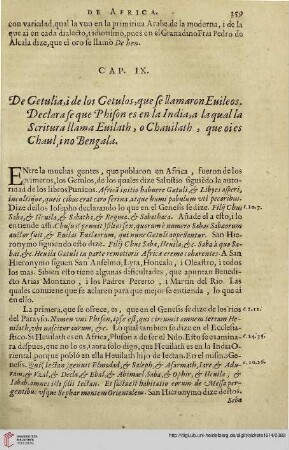 DE AFRICA. 359
con variedad, qual la vuo en la primitiua Arabe, de la moderna, i de la
que ai en cada dialecto, i idiotismo, pues en el Granadino Frai Pedro de
Alcala dize, que el oro se llamò De heu.
CAP. IX.
De Getulia, i de los Getulos, que se llamaron Euileos.
Declarase que Phison es en la India, a la qual la
Scritura llama Euilath, o Chauilath, que oi es
Chaul, i no Bengala.
ENtre la muchas gentes, que poblaron en Africa, fueron de los
primeros, los Getulos, de los quales dize Salustio siguiẽdo la autori-
dad de los libros Punicos. Africã initio habuere Getuli, & Libyes asperi,
incultique, quis cibus erat caro ferina, atque humi pabulum vti pecoribus.
Dize dellos Iosepho declarando lo que en el Genesis se dize. Filij Chus
Saba, & Heuila, & Sabatha, & Regma, & Sabathaca. Añade el a esto, i lo
entiende assi.
auẽt fuit, & Euilæi Euilæorum, qui nunc Getuli apellantur. San Hie-
ronymo siguiendo esto dize. Filij Chus Saba, Heuila, &c. Saba à quo Sa-
bæi, &c. Heuila Getuli in parte remotioris Africæ eremo cohærentes. A San
Hieronymo siguen San Anselmo, Lyra, Honcala, i Oleastro, i todos los
mas. Siben esto tiene algunas dificultades, que apuntan Benedic-
to Arias Montano, i los Padres Pererio, i Martin del Rio. Las
quales conuiene que se aclaren para que mejor se entienda, lo que ai en
ello.
La primera, que se ofrece, es, que en el Genesis se dize de los rios
del Parayso. Nomen vni Phison, ipse est, qui circuit omnem terram He-
uilath, vbi nascitur aurum, &c. Lo qual tambien se dize en el Ecclesia-
stico. Si Heuilath es en Africa, Phison a de ser el Nilo. Esto se examina-
rà despues, i aora solo fue apuntado digo, que Heuilath es en la India
Oriental, porque poblò en ella Heuilath hijo de Iectan. En el mismo Ge-
nesis. Qui Iectan genuit Elmodad, & Saleph, & Asarmoth, Iare, & Adu-
ram, & Vzal, & Decla, & Ebal, & Abimael, Saba, & Ophir, & Heuila, &
Iobab. omnes isti filij Iectan. Et facta est habitatio eorum de Messa per-
gentibus vsque Sephar montem Orientalem. San Hieronymo dize destos.
Seba
c. 10. 7.
c. 2. 11.
c. 10. 26.
http://digi.ub.uni-heidelberg.de/diglit/aldrete1614/0383